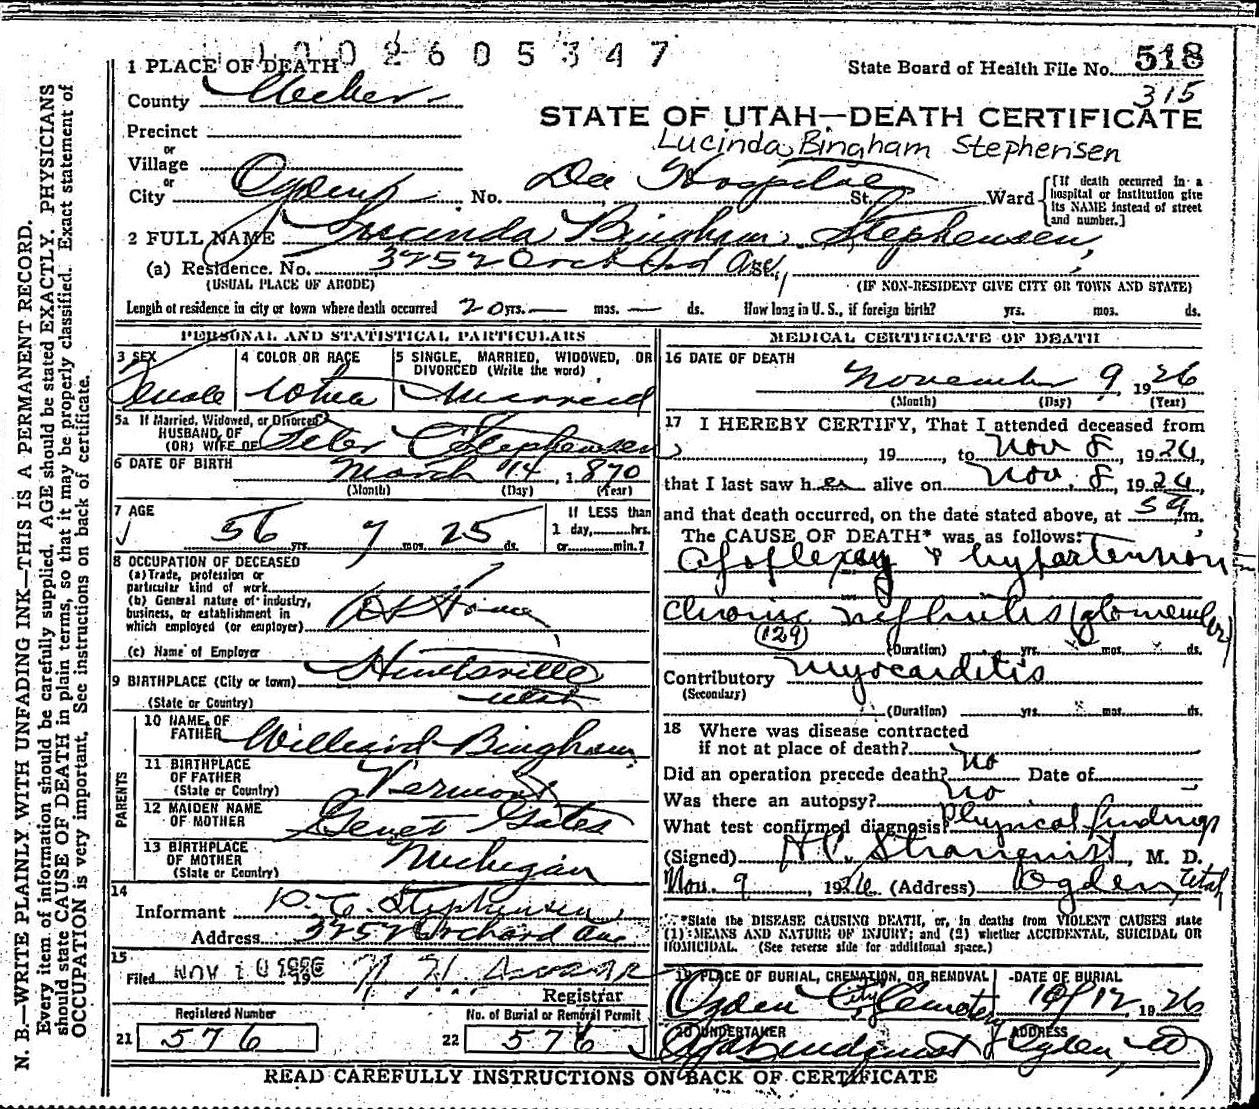 1002605347
1 PLACE OF DEATH
State Board of Health File No. 518
315
County Weber
STATE OF UTAH—DEATH CERTIFICATE
Precinct
Lucinda Bingham Stephensen
or
Village
or
City Ogden No. Dee Hospital St. Ward
[If death occurred in a hospital or institution give its NAME instead of street and number.]
2 FULL NAME Lucinda Bingham Stephensen
(a) Residence. No. 3252 Orchard Ave,
(USUAL PLACE OF ABODE) (IF NON-RESIDENT GIVE CITY OR TOWN AND STATE)
Length of residence in city or town where death occurred 20 yrs. — mos. — ds. How long in U. S., if foreign birth? yrs. mos. ds.
PERSONAL AND STATISTICAL PARTICULARS
3 SEX
Female
4 COLOR OR RACE
White
5 SINGLE, MARRIED, WIDOWED, OR DIVORCED (Write the word)
Married
5a If Married, Widowed, or Divorced
HUSBAND OF
(OR) WIFE OF Peter Stephensen
6 DATE OF BIRTH March 14, 1870
(Month) (Day) (Year)
7 AGE
56 yrs. 7 mos. 25 ds.
If LESS than
1 day, hrs.
or min.?
8 OCCUPATION OF DECEASED
(a) Trade, profession or
particular kind of work
(b) General nature of industry,
business, or establishment in
which employed (or employer) At Home
(c) Name of Employer
9 BIRTHPLACE (City or town) Huntsville
(State or Country) Utah
PARENTS
10 NAME OF
FATHER Williard Bingham
11 BIRTHPLACE
OF FATHER
(State or Country) Vermont
12 MAIDEN NAME
OF MOTHER Genet Gates
13 BIRTHPLACE
OF MOTHER
(State or Country) Michigan
14
Informant Stephensen
Address 3252 Orchard Ave
15
Filed NOV 10 1926 19
Registrar
Registered Number
21 576
No. of Burial or Removal Permit
22 576
MEDICAL CERTIFICATE OF DEATH
16 DATE OF DEATH
November 9 1926
(Month) (Day) (Year)
17 I HEREBY CERTIFY, That I attended deceased from
, 19 , to Nov 8, 1926,
that I last saw her alive on Nov. 8, 1926,
and that death occurred, on the date stated above, at 5 a m.
The CAUSE OF DEATH* was as follows:
Apoplexy & hypertension
Chronic nephritis (glomerular)
(129)
(Duration) yrs. mos. ds.
Contributory Myocarditis
(Secondary)
(Duration) yrs. mos. ds.
18 Where was disease contracted
if not at place of death?
Did an operation precede death? No Date of
Was there an autopsy? No
What test confirmed diagnosis? Physical findings
(Signed) Stranquist, M. D.
Nov. 9, 1926 (Address) Ogden, Utah
*State the DISEASE CAUSING DEATH, or, in deaths from VIOLENT CAUSES state
(1) MEANS AND NATURE OF INJURY; and (2) whether ACCIDENTAL, SUICIDAL OR
HOMICIDAL. (See reverse side for additional space.)
19 PLACE OF BURIAL, CREMATION, OR REMOVAL
Ogden City Cemetery
DATE OF BURIAL
12 1926
20 UNDERTAKER
Lindquist
ADDRESS
Ogden, U
READ CAREFULLY INSTRUCTIONS ON BACK OF CERTIFICATE
N. B.—WRITE PLAINLY WITH UNFADING INK—THIS IS A PERMANENT RECORD.
Every item of information should be carefully supplied. AGE should be stated EXACTLY. PHYSICIANS
should state CAUSE OF DEATH in plain terms, so that it may be properly classified. Exact statement of
OCCUPATION is very important. See instructions on back of certificate.